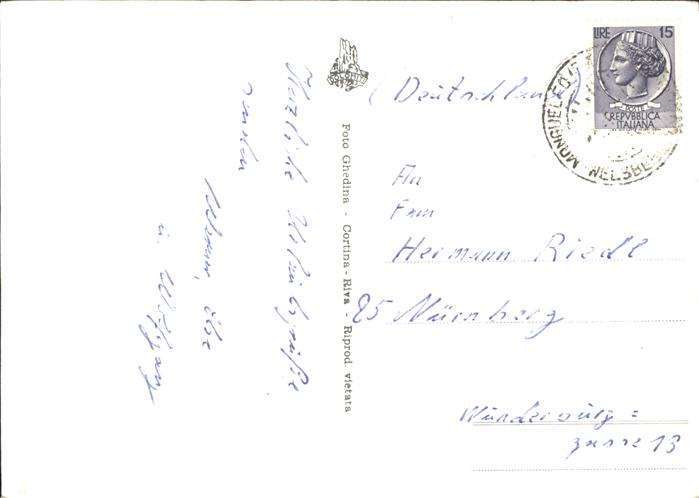 Herzliche Urlaubsgrüße
senden
Werner, Else
u. Wolfgang
Foto Ghedina - Cortina - Riva - Riprod vietata
(Deutschland
LIRE 15
POSTE
REPVBBLICA
ITALIANA
MONGUELFO
WELSBERG
An
Frau
Hermann Riedl
85 Nürnberg
Wunderburg=
gasse 13